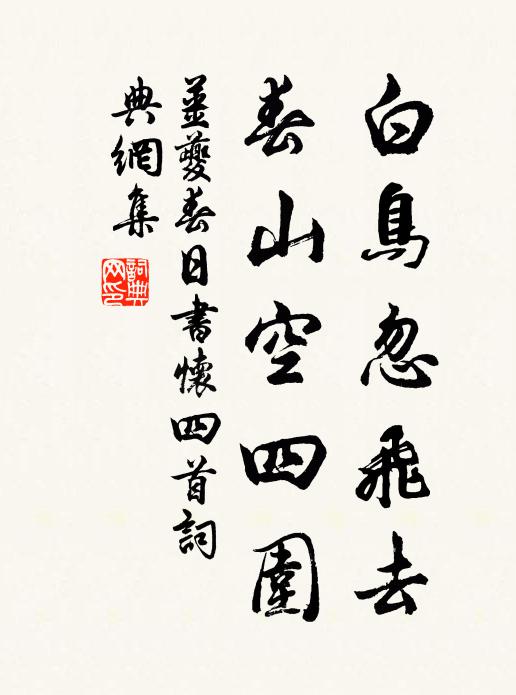 白鳥忽飛去
春山空四圍
姜夔春日書懷四首詞
典網集
詞典
网印